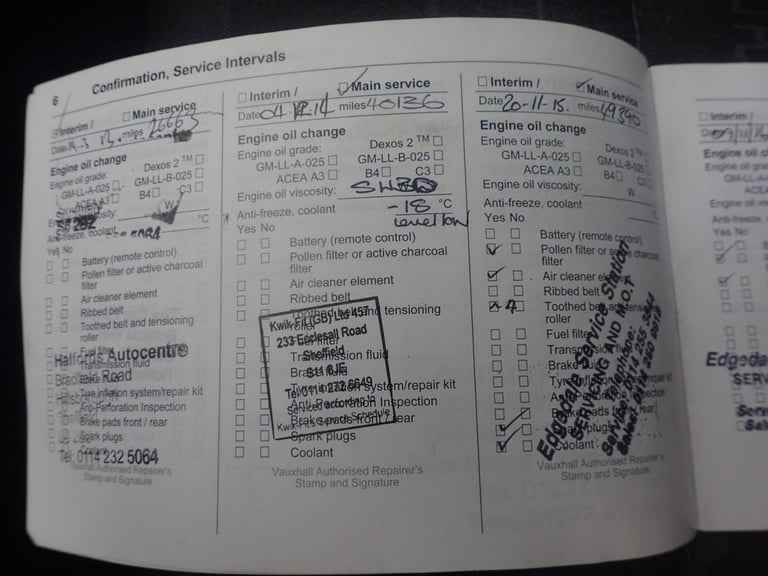 6
Confirmation, Service Intervals
Interim /
Main service
Date
miles 26663
Engine oil change
Engine oil grade:
Dexos 2 ™
GM-LL-A-025
GM-LL-B-025
ACEA A3
B4
C3
W
°C
Yes No
Battery (remote control)
Pollen filter or active charcoal
filter
Air cleaner element
Ribbed belt
Toothed belt and tensioning
roller
Fuel filter
Transmission fluid
Brake fluid
Tyre inflation system/repair kit
Anti-Perforation Inspection
Brake pads front / rear
Spark plugs
Coolant
Halfords Autocentre
Road
Tel: 0114 232 5064
Vauxhall Authorised Repairer's
Stamp and Signature
Interim /
Main service
Date 04.12.14 miles 40136
Engine oil change
Engine oil grade:
Dexos 2 ™
GM-LL-A-025
GM-LL-B-025
ACEA A3
B4
C3
Engine oil viscosity:
Anti-freeze, coolant
-18 °C
level low
Yes No
Battery (remote control)
Pollen filter or active charcoal
filter
Air cleaner element
Ribbed belt
Toothed belt and tensioning
roller
Transmission fluid
Tyre inflation system/repair kit
Anti-Perforation Inspection
Brake pads front / rear
Spark plugs
Coolant
Kwik-Fit (GB) Ltd 457
233 Ecclesall Road
Sheffield
S11 8JE
Tel 0114 272 6649
Serviced according to
Kwik-Fit's Service Schedule
Vauxhall Authorised Repairer's
Stamp and Signature
Interim /
Main service
Date 20-11-15. miles 49390
Engine oil change
Engine oil grade:
Dexos 2 ™
GM-LL-A-025
GM-LL-B-025
ACEA A3
B4
C3
Engine oil viscosity:
W
Anti-freeze, coolant
Yes No
Battery (remote control)
Pollen filter or active charcoal
filter
Air cleaner element
Ribbed belt
Toothed belt and tensioning
roller
Fuel filter
Transmission fluid
Brake fluid
Brake pads front / rear
Spark plugs
Coolant
Edgedale Service Station
SERVICING AND M.O.T
Vauxhall Authorised Repairer's
Stamp and Signature
Interim /
Date
Engine oil
Engine oil
GM-LL-A
ACEA
Engine oil
Anti-freeze,
Yes No
Edgeda
SERV